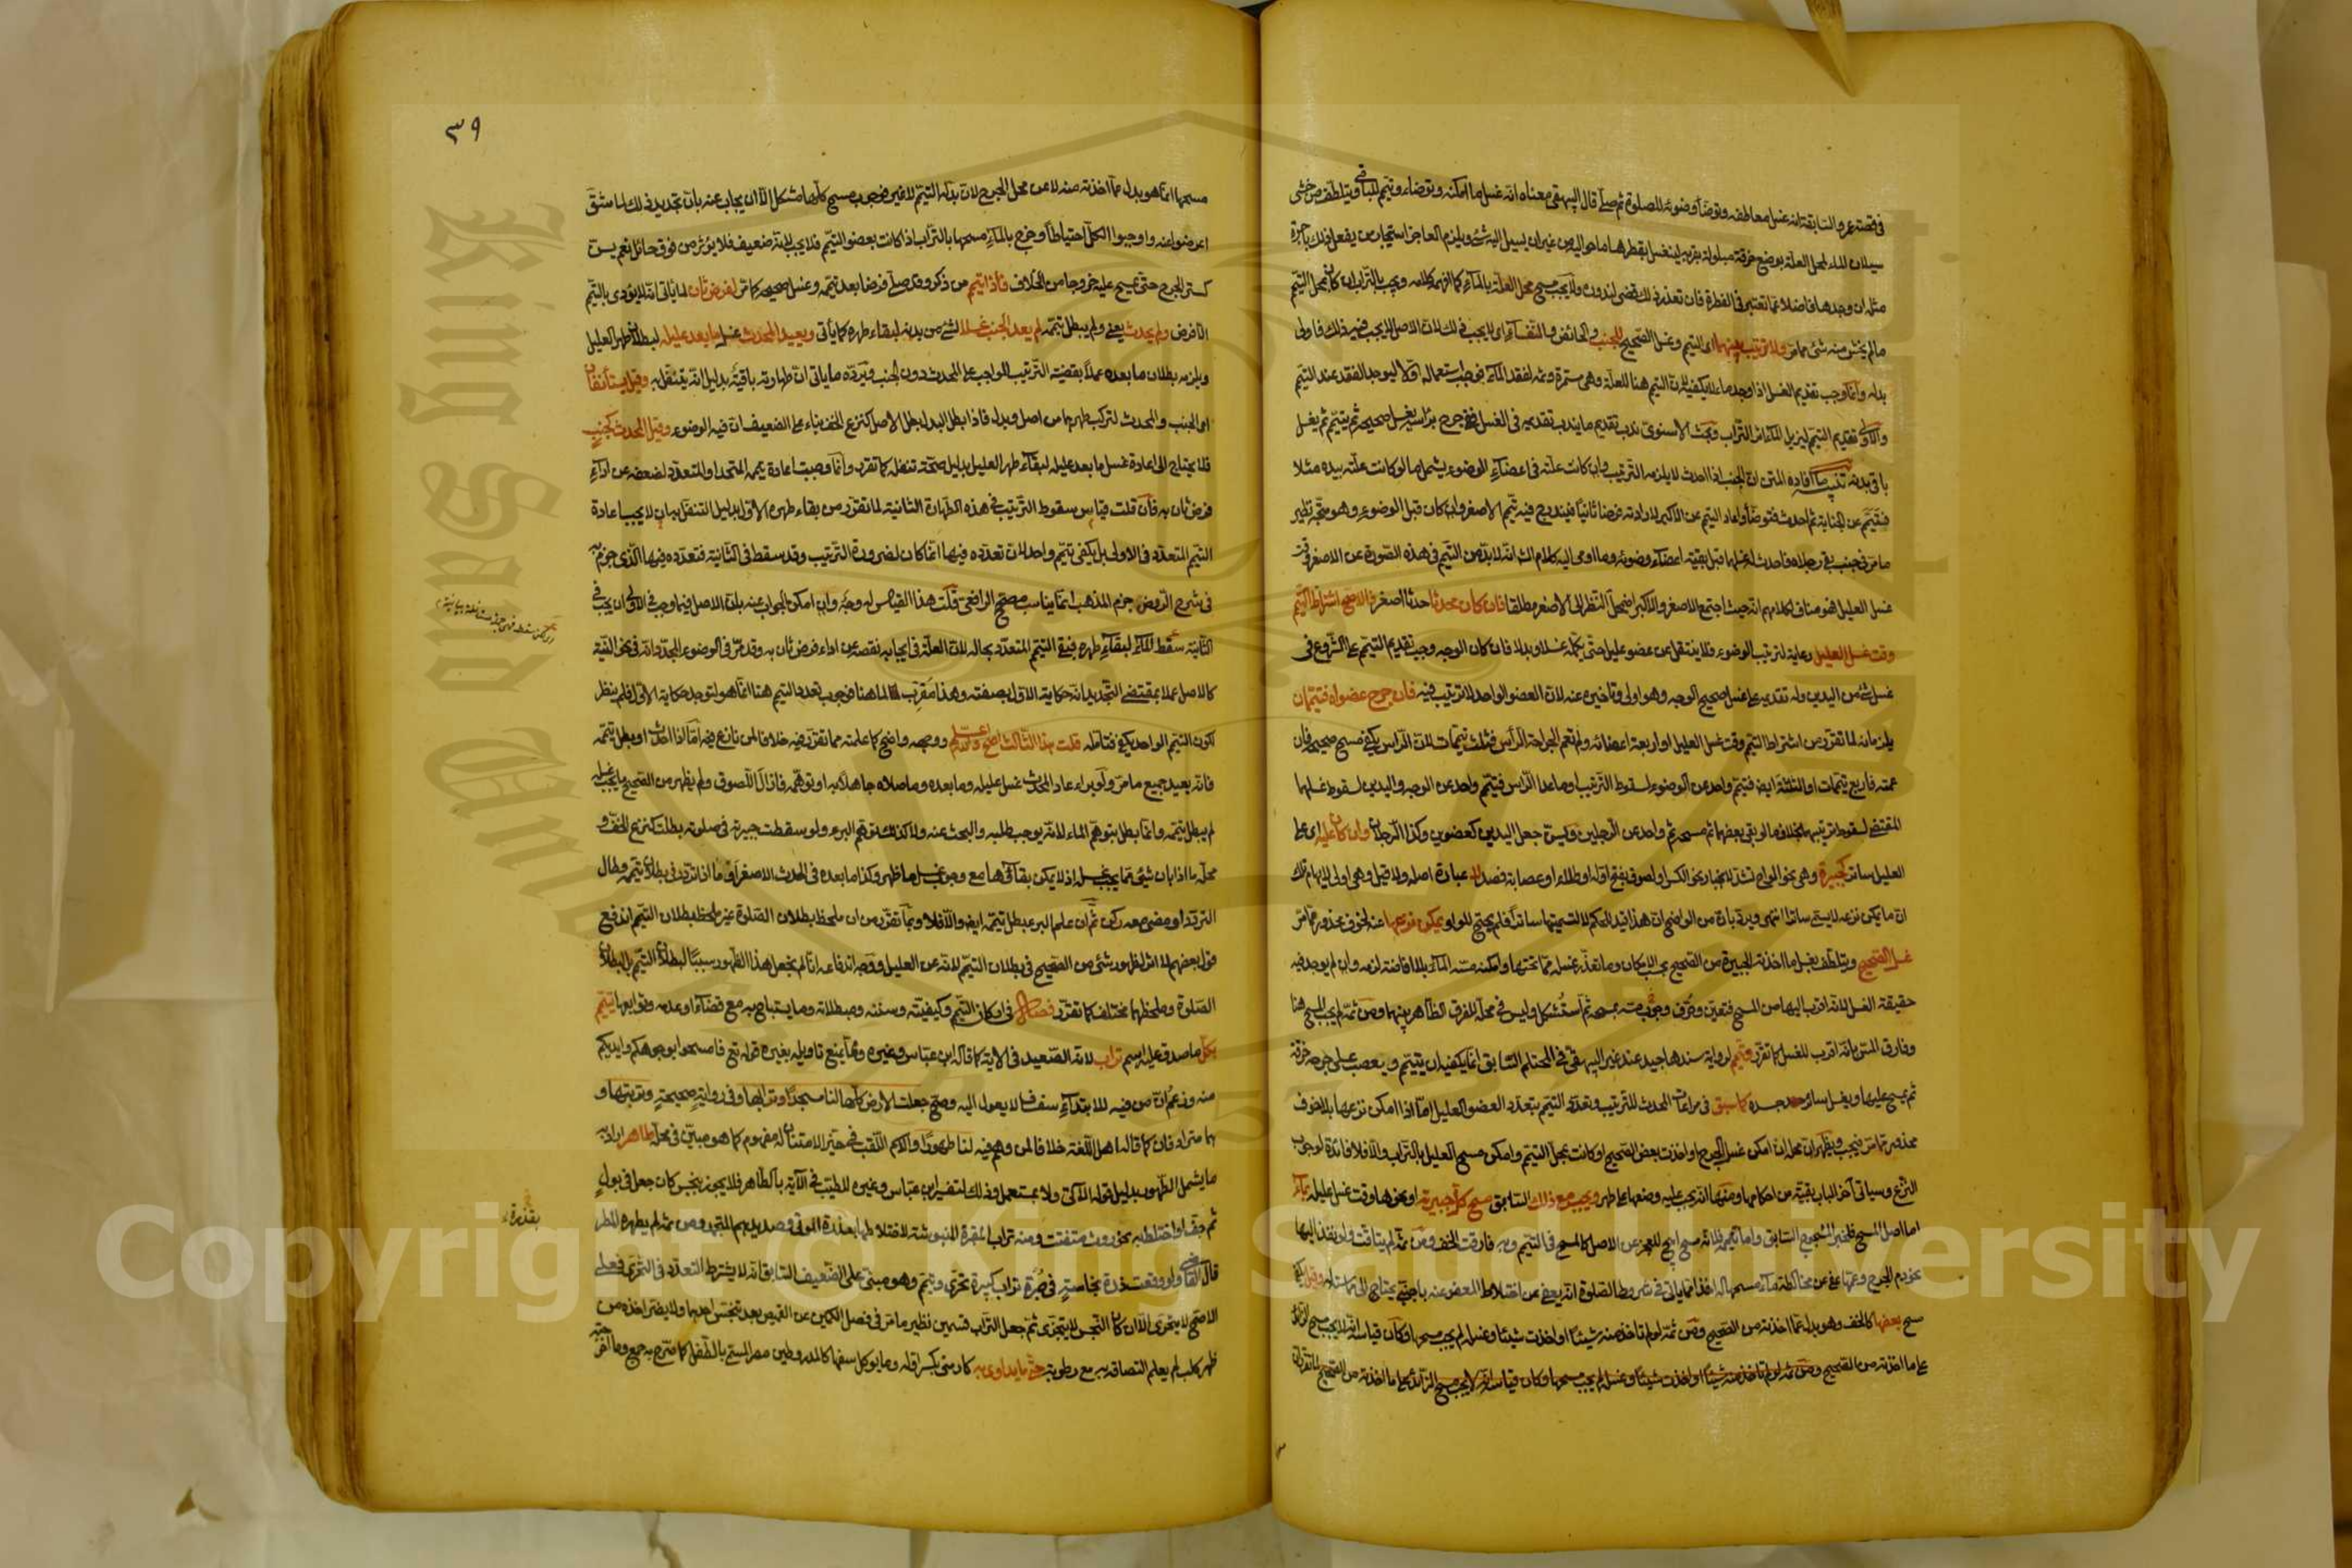 في قصة عمرو السابقة انه غسل معاطفه وتوضأ وضوئه للصلوة ثم صلى قال البيهقي معناه انه غسل ما امكنه وتوضاء وتيمم للباقي ويتلطف من خشي
سيلان الماء لمحل العلة بوضع خرقة مبلولة بقربه لينغسل بقطرها ما حواليه من غير ان يسيل اليه شئ ويلزم العاجز استيجار من يفعل ذلك باجرة
مثله ان وجدها فاضلا عما تعتبر في الفطرة فان تعذر ذلك قضى لندوره ولا يجب مسح محل العلة بالماء كما افهمه كلامه ويجب بالتراب ان كان بمحل التيمم
ما لم يخش منه شئ مما مر ولا ترتيب بينهما اي التيمم وغسل الصحيح للجنب والحائض والنفساء اي لا يجب ذلك لان الاصل لا يجب فيه ذلك فاولى
بدله وانما وجب تقديم الغسل اذا وجد ما لا يكفيه لان التيمم هنا للعلة وهي مستمرة وثم لفقد الماء فوجب استعماله اولا ليوجد الفقد عند التيمم
والاولى تقديم التيمم ليزيل الماء اثر التراب وبحث الاسنوي ندب تقديم ما يندب تقديمه في الغسل ففي جرح براسه يغسل صحيحه ثم يتيمم ثم يغسل
باقي بدنه تنبيه ما افاده المتن ان الجنب اذا احدث لا يلزمه الترتيب وان كانت علته في اعضاء الوضوء يشمل ما لو كانت علته بيده مثلا
فتيمم عن الجنابة ثم احدث فتوضأ واعاد التيمم عن الاكبر لارادته فرضا ثانيا فيندرج فيه تيمم الاصغر وان كان قبل الوضوء وهو متجه نظير
ما مر في جنب بقي رجلاه فاحدث له غسلهما قبل بقية اعضاء وضوئه وما اومى اليه كلام الشا انه لا بد من التيمم في هذه الصورة عن الاصغر وقت
غسل العليل فهو مناف لكلامهم انه حيث اجتمع الاصغر والاكبر اضمحل النظر الى الاصغر مطلقا فان كان محدثا حدثا اصغر فالاصح اشتراط التيمم
وقت غسل العليل رعاية لترتيب الوضوء فلا ينتقل عن عضو عليل حتى يكمله غسلا وبدلا فان كان الوجه وجب تقديم التيمم على الشروع في
غسل شئ من اليدين وله تقديمه على غسل صحيح الوجه وهو اولى وتاخيره عنه لان العضو الواحد لا ترتيب فيه فان جرح عضواه فتيممان
يلزمانه لما تقرر من اشتراط التيمم وقت غسل العليل او اربعة اعضائه ولم تعم الجراحة الرأس فثلث تيممات لان الراس يكفي مسح صحيحه فان
عمته فاربع تيممات او الثلثة ايضا فتيمم واحد عن الوضوء لسقوط الترتيب او ما عدا الراس فتيمم واحد عن الوجه واليدين لسقوط غسلهما
المقتضي لسقوط ترتيبهما بخلاف ما لو بقي بعضهما ثم مسحه ثم واحد عن الرجلين ويسن جعل اليدين كعضوين وكذا الرجلان وان كان عليه اي على
العليل ساتر كجبيرة وهي نحو الواح تشد لانجبار نحو الكسر او لصوق بفتح اوله او طلاء او عصابة فصد
ان ما يمكن نزعه لا يسمى ساترا انتهى ويرد بان من الواضح ان هذا قيد للحكم لا لتسميتها ساترا فلم يحتج للواو يمكن نزعها عنه لخوف محذور مما مر
غسل الصحيح ويتلطف بغسل ما اخذته الجبيرة من الصحيح بحسب الامكان وما تعذر غسله مما تحتها وامكنه مسه الماء بلا افاضة لزمه وان لم يوجد فيه
حقيقة الغسل لانه اقرب اليها من المسح فتعين
وفارق المتن بانه اقرب للغسل كما تقرر وتيمم لرواية سندها جيد عند غير البيهقي في المحتلم السابق انما يكفيه ان يتيمم ويعصب على جرحه خرقة
ثم يمسح عليها ويغسل سائر جسده كما سبق في مراعات المحدث للترتيب وتعدد التيمم بتعدد العضو العليل اما اذا امكن نزعها بلا خوف
محذور مما مر فيجب ويظهر ان محله ان امكن غسل الجرح او اخذت بعض الصحيح او كانت بمحل التيمم وامكن مسح العليل بالتراب والا فلا فائدة لوجوب
النزع وسياتي آخر الباب بقية من احكامها ومنها انه يجب عليه وضعها على طهر ويجب مع ذلك السابق مسح كل جبيرته او نحوها وقت غسل عليله بماء
اما اصل المسح فلخبر المشجوج السابق واما تعميمه فلانه مسح ابيح للعجز عن الاصل كالمسح في التيمم وبه فارقت الخف ومن ثمه لم يتاقت ولو نفذ اليها
نحو دم الجرح وعمها عفي عن مخالطة ماء مسحها له اخذا مما ياتي في شروط الصلوة انه يعفى عن اختلاط المعفو عنه باجنبي يحتاج الى مماسته له وقيل يكفي
مسح بعضها كالخف وهو بدل عما اخذته من الصحيح ومن ثمه لو لم تاخذ منه شيئا او اخذت شيئا وغسله لم يجب مسحها وكان قياسه انه لا يجب مسح الزائد
على ما اخذته من الصحيح
٣٩
مسحها انما هو بدل عما اخذته منه لا عن محل الجرح لان بدله التيمم لا غير فوجوب مسح كلها مشكل الا ان يجاب عنه بان تحديد ذلك لما شق
اعرضوا عنه واوجبوا الكل احتياطا وخرج بالماء مسحها بالتراب اذا كانت بعضو التيمم فلا يجب لانه ضعيف فلا يؤثر من فوق حائل نعم يسن
كستر الجرح حتى يمسح عليه خروجا من الخلاف فاذا تيمم من ذكر وقد صلى فرضا بعد تيممه وغسل صحيحه كما مر لفرض ثان لما ياتي انه لا يؤدى بالتيمم
الا فرض ولم يحدث يعني ولم يبطل تيممه لم يعد الجنب غسلا لشئ من بدنه لبقاء طهره كما يأتي ويعيد المحدث غسل ما بعد عليله لبطلان طهر العليل
ويلزمه بطلان ما بعده عملا بقضية الترتيب الواجب على المحدث دون الجنب ويرده ما ياتي ان طهارته باقية بدليل انه يتنفل به وقيل يستأنفان
اي الجنب والمحدث لتركب طهرهما من اصل وبدل فاذا بطل البدل بطل الاصل كنزع الخف بناء على الضعيف ان فيه الوضوء وقيل المحدث كجنب
فلا يحتاج الى اعادة غسل ما بعد عليله لبقاء طهر العليل بدليل صحة تنفله كما تقرر وانما وجبت اعادة تيممه المتحد او المتعدد لضعفه عن اداء
فرض ثان به فان قلت قياس سقوط الترتيب في هذه الطهارة الثانية لما تقرر من بقاء طهره الاول بدليل التنفل به ان لا يجب اعادة
التيمم المتعدد في الاولى بل يكفي تيمم واحد لان تعدده فيها انما كان لضرورة الترتيب وقد سقط في الثانية فتعدده فيها الذي جزم به
في شرح الروض جزم المذهب انما يناسب مصحح الرافعي قلت هذا القياس له وجه وان امكن الجواب عنه بان الاصل فيما وجب في الاولى ان يجب في
الثانية سقط الماء لبقاء طهره فبقي التيمم المتعدد بحاله لان العلة في ايجابه نقصه عن اداء فرض ثان به وقد مر في الوضوء المجدد انه في نحو النية
كالاصل عملا بمقتضى التجديد انه حكاية الاول بصفته وهذا مقرب لما هنا فوجوب تعدد التيمم هنا انما هو لتوجد حكاية الاول فلم ينظر
لكون التيمم الواحد يكفي فتأمله قلت هذا الثالث اصح والله اعلم ووجهه واضح كما علمته مما تقرر فيه خلافا لمن نازع فيه اما اذا احدث او بطل تيممه
فانه يعيد جميع ما مر ولو برأ اعاد المحدث غسل عليله وما بعده وما صلاه جاهلا به او توهمه فازال اللصوق ولم يظهر من الصحيح ما يجب غسله
لم يبطل تيممه وانما بطل بتوهم الماء لانه يوجب طلبه والبحث عنه ولا كذلك توهم البرء ولو سقطت جبيرته في صلوته بطلت كنزع الخف و
محله ما اذا بان شئ مما يجب غسله اذ لا يمكن بقاؤها مع وجوب غسل ما ظهر وكذا ما بعده في الحدث الاصغر او ما اذا تردد في بطلان تيممه وطال
التردد او مضى معه ركن ثم ان علم البرء بطل تيممه ايضا والا فلا وبما تقرر من ان ملحظ بطلان الصلوة غير ملحظ بطلان التيمم اندفع
قول بعضهم لا اثر لظهور شئ من الصحيح في بطلان التيمم لانه عن العليل ووجه اندفاعه انا لم نجعل هذا الظهور سببا لبطلان التيمم بل لبطلان
الصلوة وملحظهما مختلف كما تقرر فصل في اركان التيمم وكيفيته وسننه ومبطلاته وما يستباح به مع قضاء او عدمه وتوابعها يتيمم
بكل ما صدق عليه اسم تراب لانه الصعيد في الآية كما قاله ابن عباس وغيره ومما يمنع تاويله بغيره قوله تع فامسحوا بوجوهكم وايديكم
منه وزعم ان من فيه للابتداء سفساف لا يعول اليه وصح جعلت لي الارض كلها لنا مسجدا وترابها وفي رواية صحيحة وتربتها و
هما مترادفان كما قاله اهل اللغة خلافا لمن وهم فيه لنا طهورا والاسم اللقب في حيز الامتنان له مفهوم كما هو مبين في محله طاهر اراد به
ما يشمل الطهور بدليل قوله الآتي ولا بمستعمل وذلك لتفسير ابن عباس وغيره الطيب في الآية بالطاهر فلا يجوز بنجس كان جعل في بول
ثم جف او اختلط به نحو روث متفتت ومنه تراب المقبرة المنبوشة لاختلاطها بعذرة الموتى وصديدهم المتجمد ومن ثمه لم يطهره المطر
قال القاضي ولو وقعت ذرة نجاسة في صبرة تراب كبيرة تحرى وتيمم وهو مبني على الضعيف السابق انه لا يشترط التعدد في التحري فعلى
الاصح لا يتحرى الا ان كان النجس لا يتجزى ثم جعل التراب قسمين نظير ما مر في فصل الكمين عن القميص بعد تنجس احدهما ولا يضر اخذه من
ظهر كلب لم يعلم التصاقه به مع رطوبة حتى ما يداوى به كارمني بكسر اوله وما يوكل سفها كالمدر وطين مصر المسمى بالطفل كما صرح به جمع وما
بقذرة